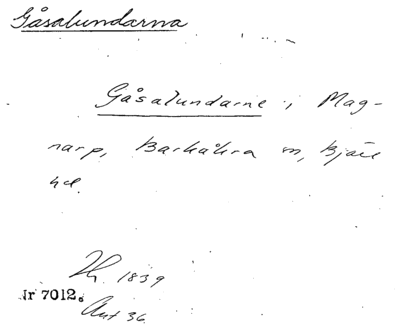 Gåsalundarna
Gåsalundarne i Mag-
narp, Barkåkra sn, Bjäre
hd.
1839
Nr 7012.
Ant 36